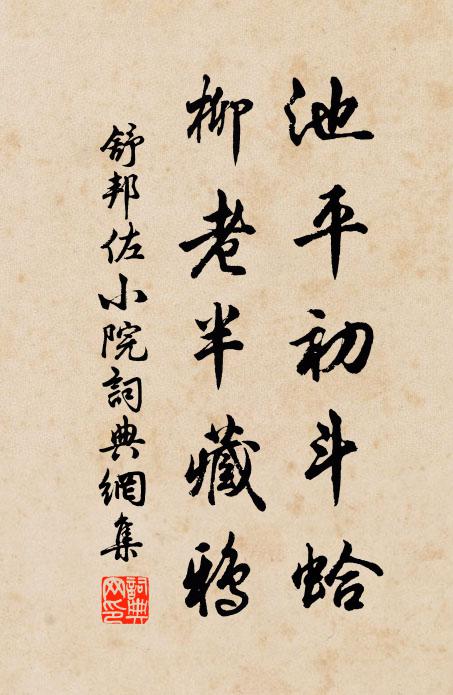 池平初斗蛤
柳老半藏鸦
舒邦佐小院詞典網集
詞典网印